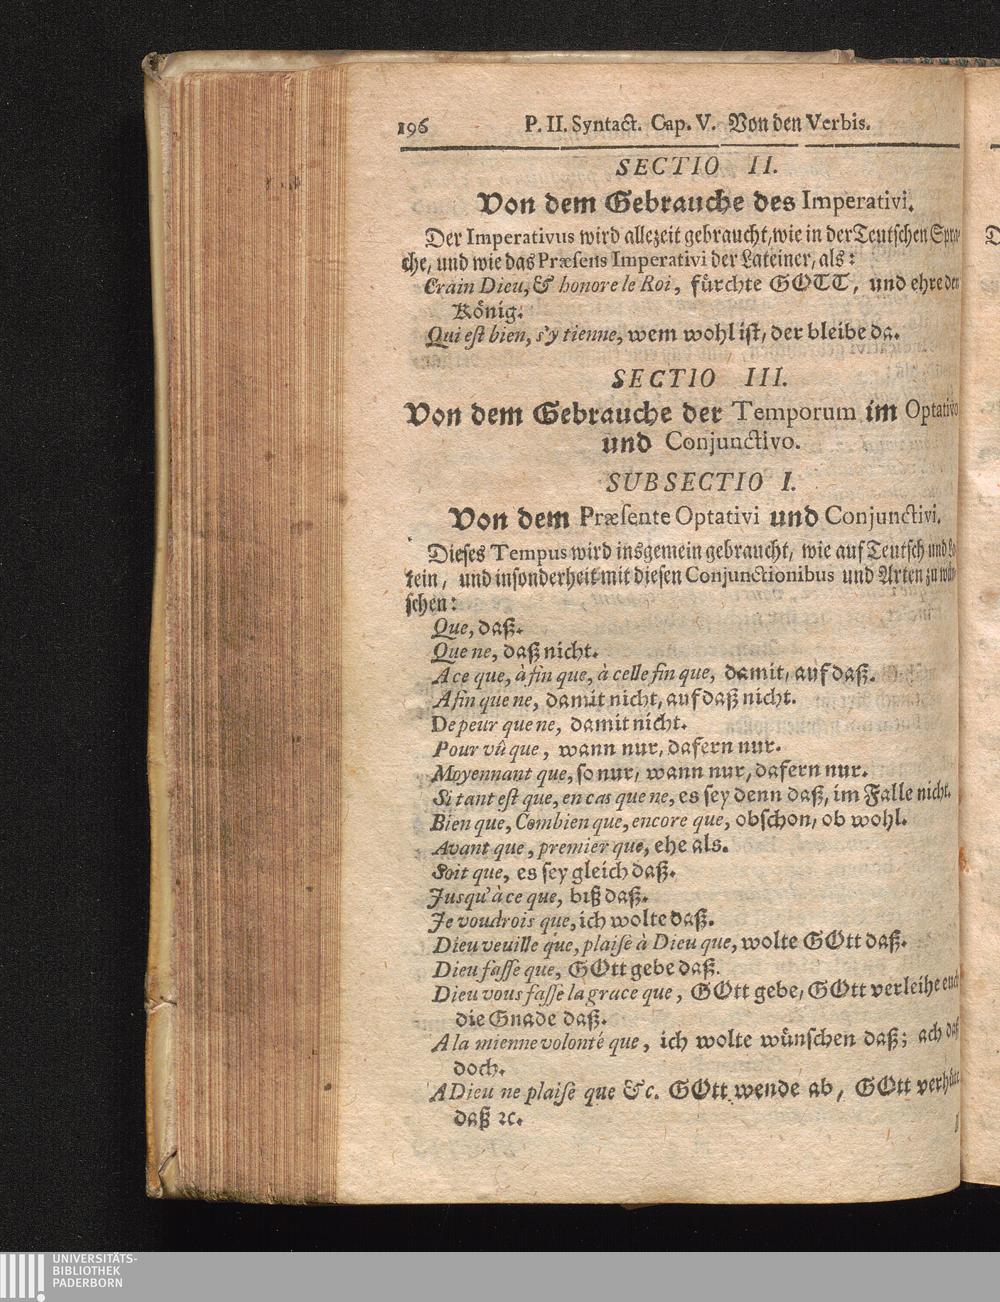 196 P. II. Syntact. Cap. V. Von den Verbis.
SECTIO II.
Von dem Gebrauche des Imperativi.
Der Imperativus wird allezeit gebraucht, wie in der Teutschen Spra-
che, und wie das Præsens Imperativi der Lateiner, als:
Crain Dieu, & honore le Roi, fürchte GOTT, und ehre den
König.
Qui est bien, s'y tienne, wem wohl ist, der bleibe da.
SECTIO III.
Von dem Gebrauche der Temporum im Optativo
und Conjunctivo.
SUBSECTIO I.
Von dem Præsente Optativi und Conjunctivi.
Dieses Tempus wird insgemein gebraucht, wie auf Teutsch und La-
tein, und insonderheit mit diesen Conjunctionibus und Arten zu wün-
schen:
Que, daß.
Que ne, daß nicht.
A ce que, à fin que, à celle fin que, damit, auf daß.
A fin que ne, damit nicht, auf daß nicht.
De peur que ne, damit nicht.
Pour vû que, wann nur, dafern nur.
Moyennant que, so nur, wann nur, dafern nur.
Si tant est que, en cas que ne, es sey denn daß, im Falle nicht.
Bien que, Combien que, encore que, obschon, ob wohl.
Avant que, premier que, ehe als.
Soit que, es sey gleich daß.
Jusqu'à ce que, biß daß.
Je voudrois que, ich wolte daß.
Dieu veuille que, plaise à Dieu que, wolte GOtt daß.
Dieu fasse que, GOtt gebe daß.
Dieu vous fasse la grace que, GOtt gebe, GOtt verleihe euch
die Gnade daß.
A la mienne volonté que, ich wolte wünschen daß; ach daß
doch.
A Dieu ne plaise que &c. GOtt wende ab, GOtt verhüte
daß ꝛc.
D
UNIVERSITÄTS-
BIBLIOTHEK
PADERBORN